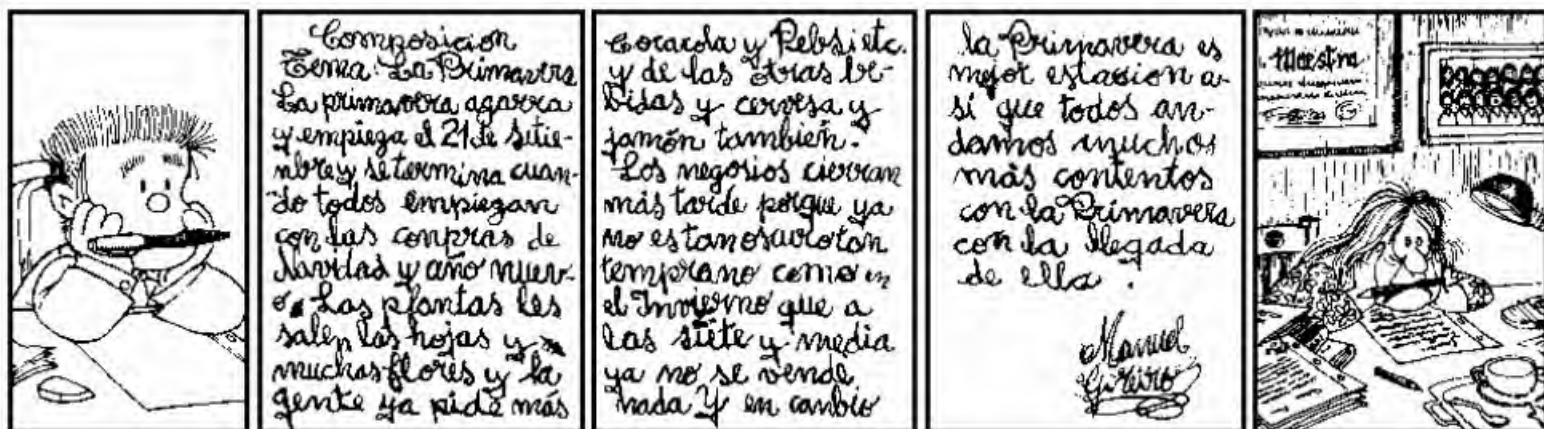 Composicion
Tema: La Primavera
La primavera agarra
y empieza el 21 de Setie-
nbre y se termina cuan-
do todos empiezan
con las conpras de
Navidad y año nuev-
o. Las plantas les
salen las hojas y
muchas flores y la
gente ya pide más
Cocacola y Pebsi etc.
y de las otras be-
bidas y cervesa y
jamón también.
Los negosios cierran
más tarde porque ya
no es
temprano como en
el Invierno que a
las siete y media
ya no se vende
nada Y en canbio
la Primavera es
mejor estasion a-
sí que todos an-
damos muchos
más contentos
con la Primavera
con la llegada
de ella.
Manuel
Goreiro
Maestra